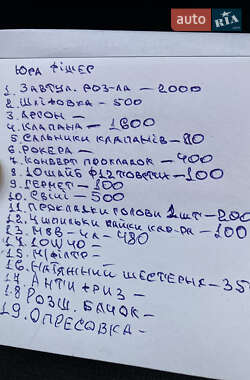 AUTO.RIA
ЮРА ФІШЕР
1. ЗАВТУЛ. РОЗ-ЛА – 2000
2. ШЛІФОВКА – 500
3. АРГОН –
4. КЛАПАНА – 1800
5. САЛЬНИКИ КЛАПАНІВ – 80
6. РОКЕРА –
7. КОНВЕРТ ПРОКЛАДОК – 400
8. 10 ШАЙБ Ф12 ТОВСТИХ – 100
9. ГЕРМЕТ – 100
10. СВІЧІ – 500
11. ПРОКЛАДКИ ГОЛОВИ 1 ШТ – 200
12. 4 ШПИЛЬКИ ГАЙКИ КАР-РА – 100
13. МВВ – ЧЛ – 480
14. 10W40 –
15. М/ФІЛТР –
16. НАТЯЖНИЙ ШЕСТЕРНЯ – 35
17. АНТИФРИЗ –
18. РОЗШ. БАЧОК –
19. ОПРЕСОВКА –